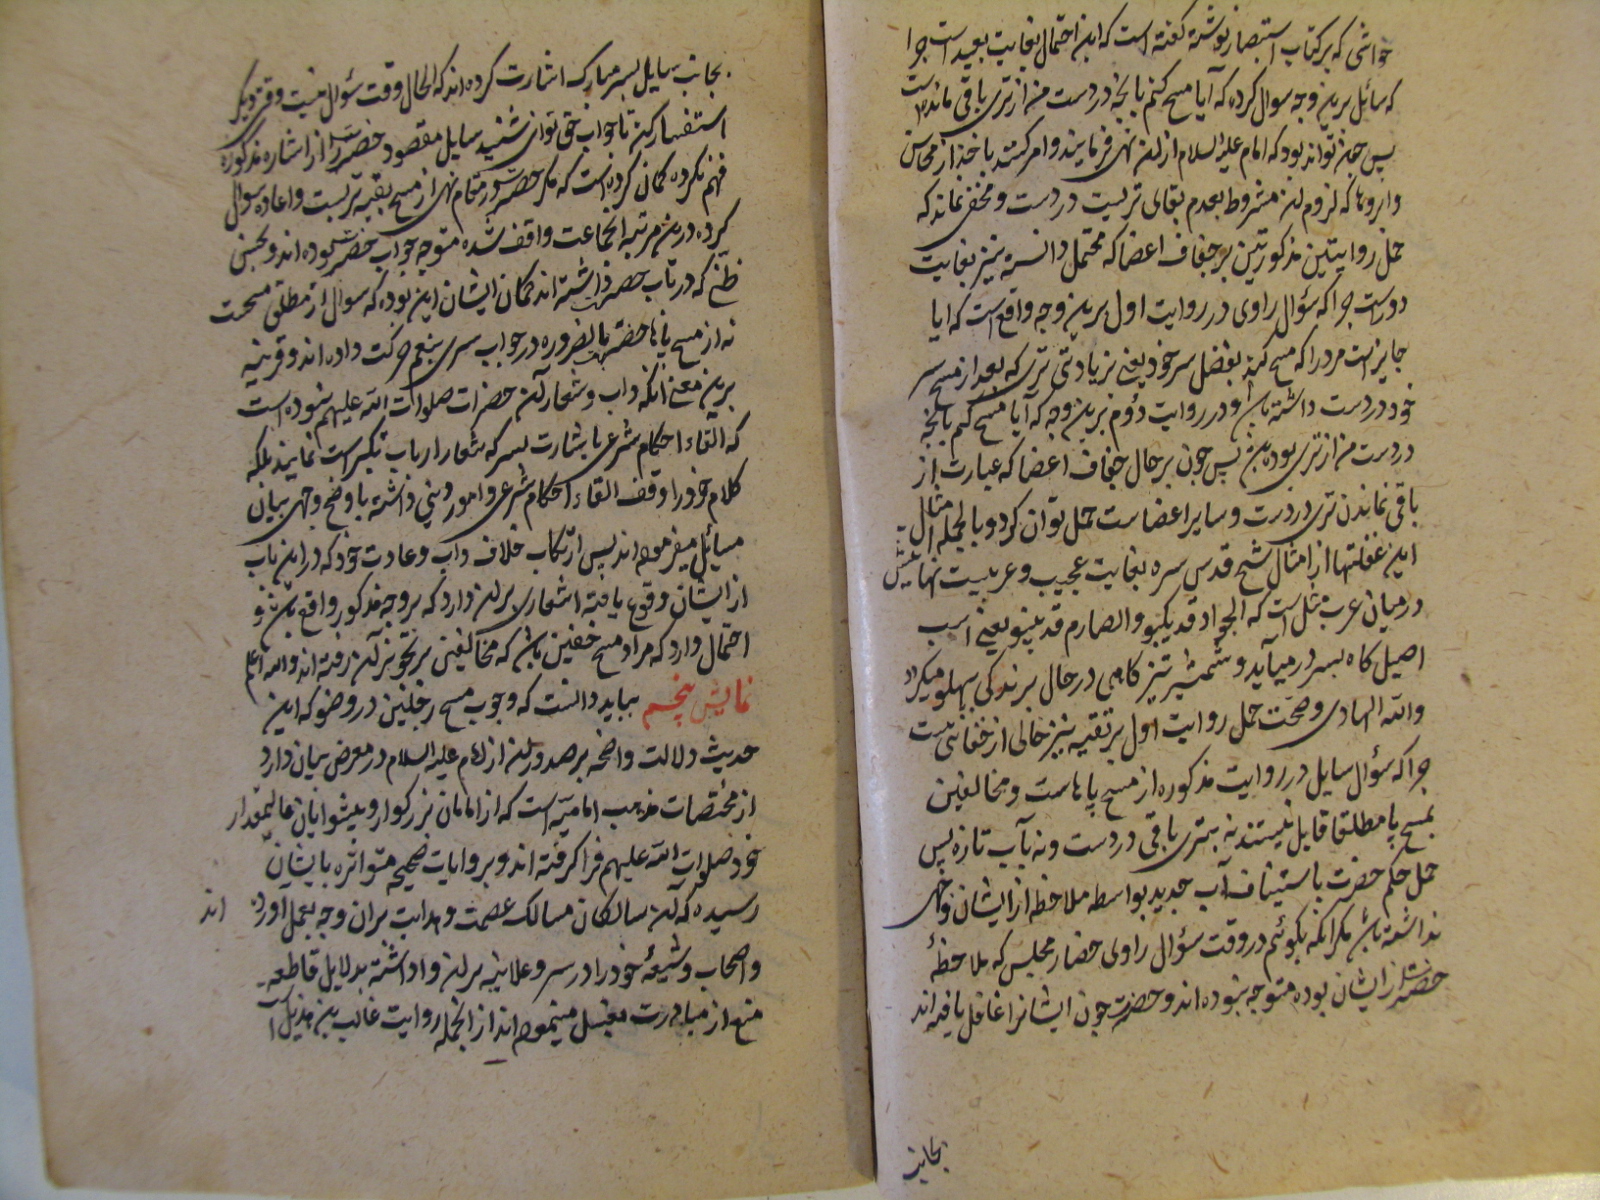 حواشی که بر کتاب استبصار نوشته گفته است که این احتمال بغایت بعید است چرا
که سائل برین وجه سوال کرده که آیا مسح کنم بانچه در دست من از تری باقی مانده است
پس چون تواند بود که امام علیه السلام ازان نهی فرمایند و امر کنند باخذ از محاسن
و ابروها که لزوم آن مشروط بعدم بقای تریست در دست و مخفی نماند که
حمل روایتین مذکورتین بر جفاف اعضا که محتمل دانسته نیز بغایت
دورست چرا که سؤال راوی در روایت اول برین وجه واقع است که ایا
جایز است مرد را که مسح کند بفضل سر خود یعنی بزیادتی تری که بعد از مسح سر
خود در دست داشته باشد و در روایت دؤم برین وجه که آیا مسح کنم بانچه
در دست من از تری بوده باشد پس چون بر حال جفاف اعضا که عبارت از
باقی نماندن تری در دست و سایر اعضاست حمل توان کرد و بالجمله امثال
این غفلتها از امثال شیخ قدس سره بغایت عجیب و غریبست
در میان عرب مثل است که الجواد قد یکبو والصارم قد ینبو یعنی اسب
اصیل کاه بسر در میآید و شمشیر تیز کاهی در حال برندکی پهلو میکرداند
والله الهادی و صحت حمل روایت اول بر تقیه نیز خالی از خفائی نیست
چرا که سؤال سایل در روایت مذکوره از مسح پاهاست و مخالفین
بمسح پا مطلقا قایل نیستند نه بتری باقی در دست و نه بآب تازه پس
حمل حکم حضرت باستیناف آب جدید بواسطه ملاحظه از ایشان وجهی
نداشته باشد مکر انکه بکوئیم در وقت سؤال راوی حضار مجلس که ملاحظهٔ
حضرت از ایشان بوده متوجه نبوده اند و حضرت چون ایشانرا غافل یافته اند
بجانب
بجانب سایل بسر مبارک اشارت کرده اند که الحال وقت سؤال نیست وقتی دیکر
استفسار کن تا جواب حق توانی شنید سایل مقصود حضرت را از اشاره مذکوره
فهم نکرده کمان کرده است که مکر حضرت در مقام نهی از مسح ببقیه تریست و اعاده سوال
کرده درین مرتبه انجماعت واقف شده متوجه جواب حضرت بوده اند و بحسن
ظنی که در باب حضرت داشته اند کمان ایشان این بوده که سوال از مطلق مسحست
نه از مسح پاها حضرت بالضروره در جواب سری بنعم حرکت داده اند و قرینه
برین معنی انکه داب و شعار آن حضرات صلوات الله علیهم نبوده است
که القاء احکام شرعی باشارت بسر که شعار ارباب تکبرست نمایند بلکه
کلام خود را وقف القاء احکام شرع و امور دینی داشته باوضح وجهی بیان
مسائل میفرموده اند پس ارتکاب خلاف داب و عادت خود که در این باب
از ایشان وقوع یافته اشعاری بران دارد که بروجه مذکور واقع باشد و
احتمال دارد که مراد مسح خفین باشد که مخالفین بر تجویز آن رفته اند والله اعلم
نمایش پنجم بباید دانست که وجوب مسح رجلین در وضو که این
حدیث دلالت واضحه بر صدور آن از امام علیه السلام در معرض بیان دارد
از مختصات مذهب امامیه است که از امامان بزرکوار و پیشوایان عالیمقدار
خود صلوات الله علیهم فرا کرفته اند و بروایات صحیحه متواتره بایشان
رسیده که آن سالکان مسالک عصمت و هدایت بران وجه بعمل اورده اند
و اصحاب و شیعهٔ خود را در سر و علانیه بران واداشته بدلایل قاطعه
منع از مبادرت بغسل مینموده اند از انجمله روایت غالب بن هذیل است